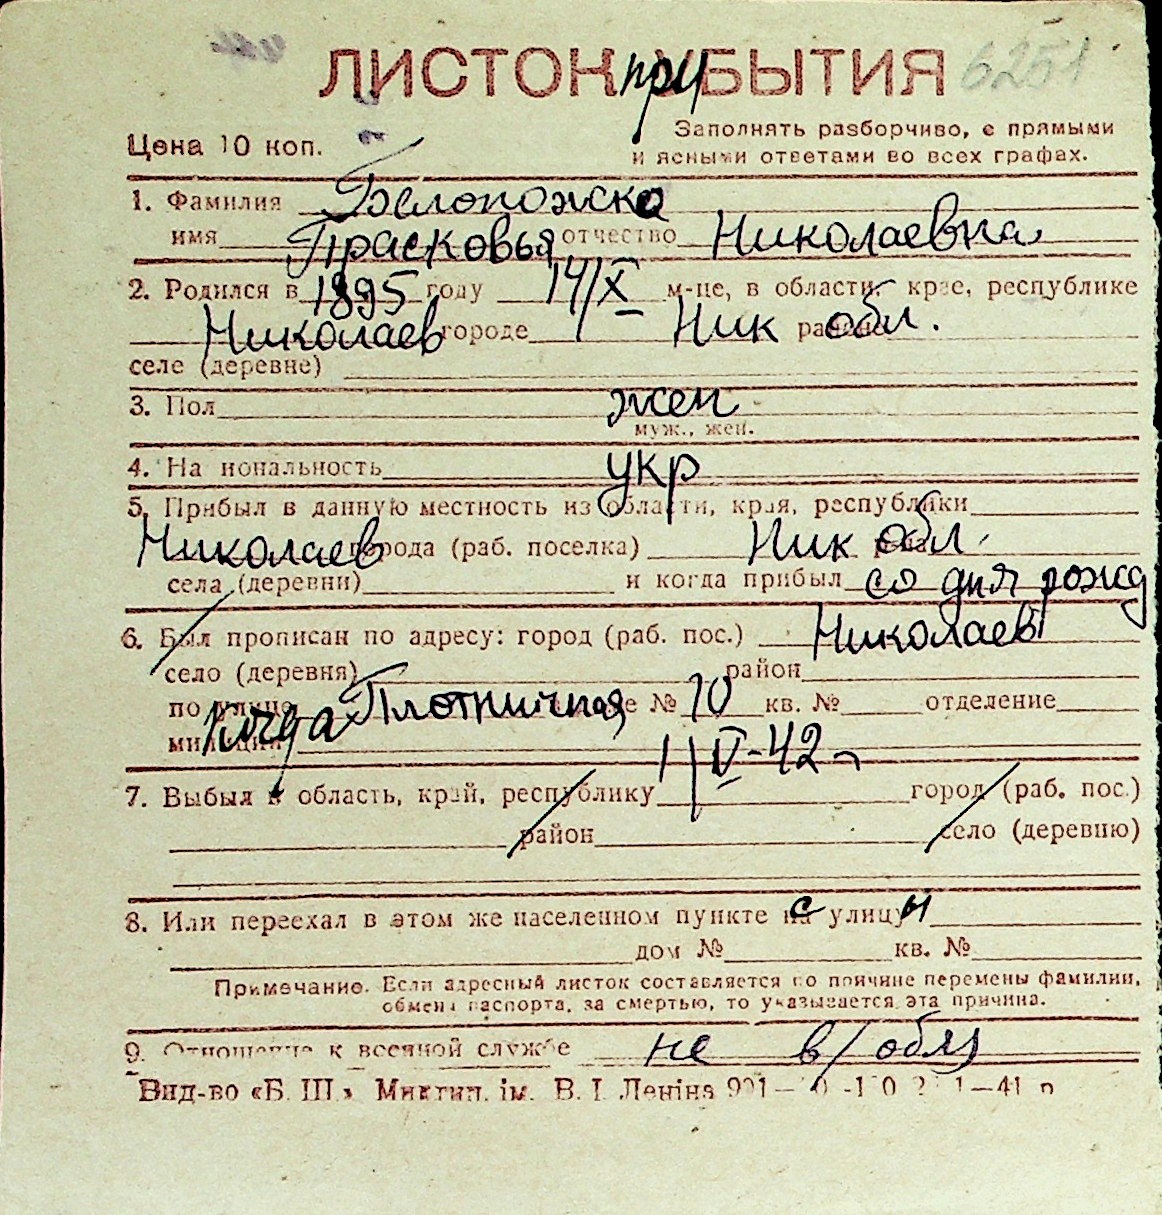 ЛИСТОК прИБЫТИЯ 6251
Цена 10 коп.
Заполнять разборчиво, с прямыми
и ясными ответами во всех графах.
1. Фамилия Белоножско
имя Прасковья отчество Николаевна
2. Родился в 1895 году 14/X м-це, в области, крае, республике
Николаев городе Ник районе обл.
селе (деревне)
3. Пол жен
муж., жен.
4. Национальность укр
5. Прибыл в данную местность из области, края, республики
Николаев города (раб. поселка) Ник обл.
села (деревни) и когда прибыл со дня рожд
6. Был прописан по адресу: город (раб. пос.) Николаев
село (деревня) район
по улице Плотничная № 10 кв. № отделение
милиции когда 1/V-42 г
7. Выбыл в область, край, республику город (раб. пос.)
район село (деревню)
8. Или переехал в этом же населенном пункте с улицы
дом № кв. №
Примечание. Если адресный листок составляется по причине перемены фамилии,
обмена паспорта, за смертью, то указывается эта причина.
9. Отношение к военной службе не в/обяз
Вид-во «Б. Ш.» Микгип. ім. В. І. Леніна